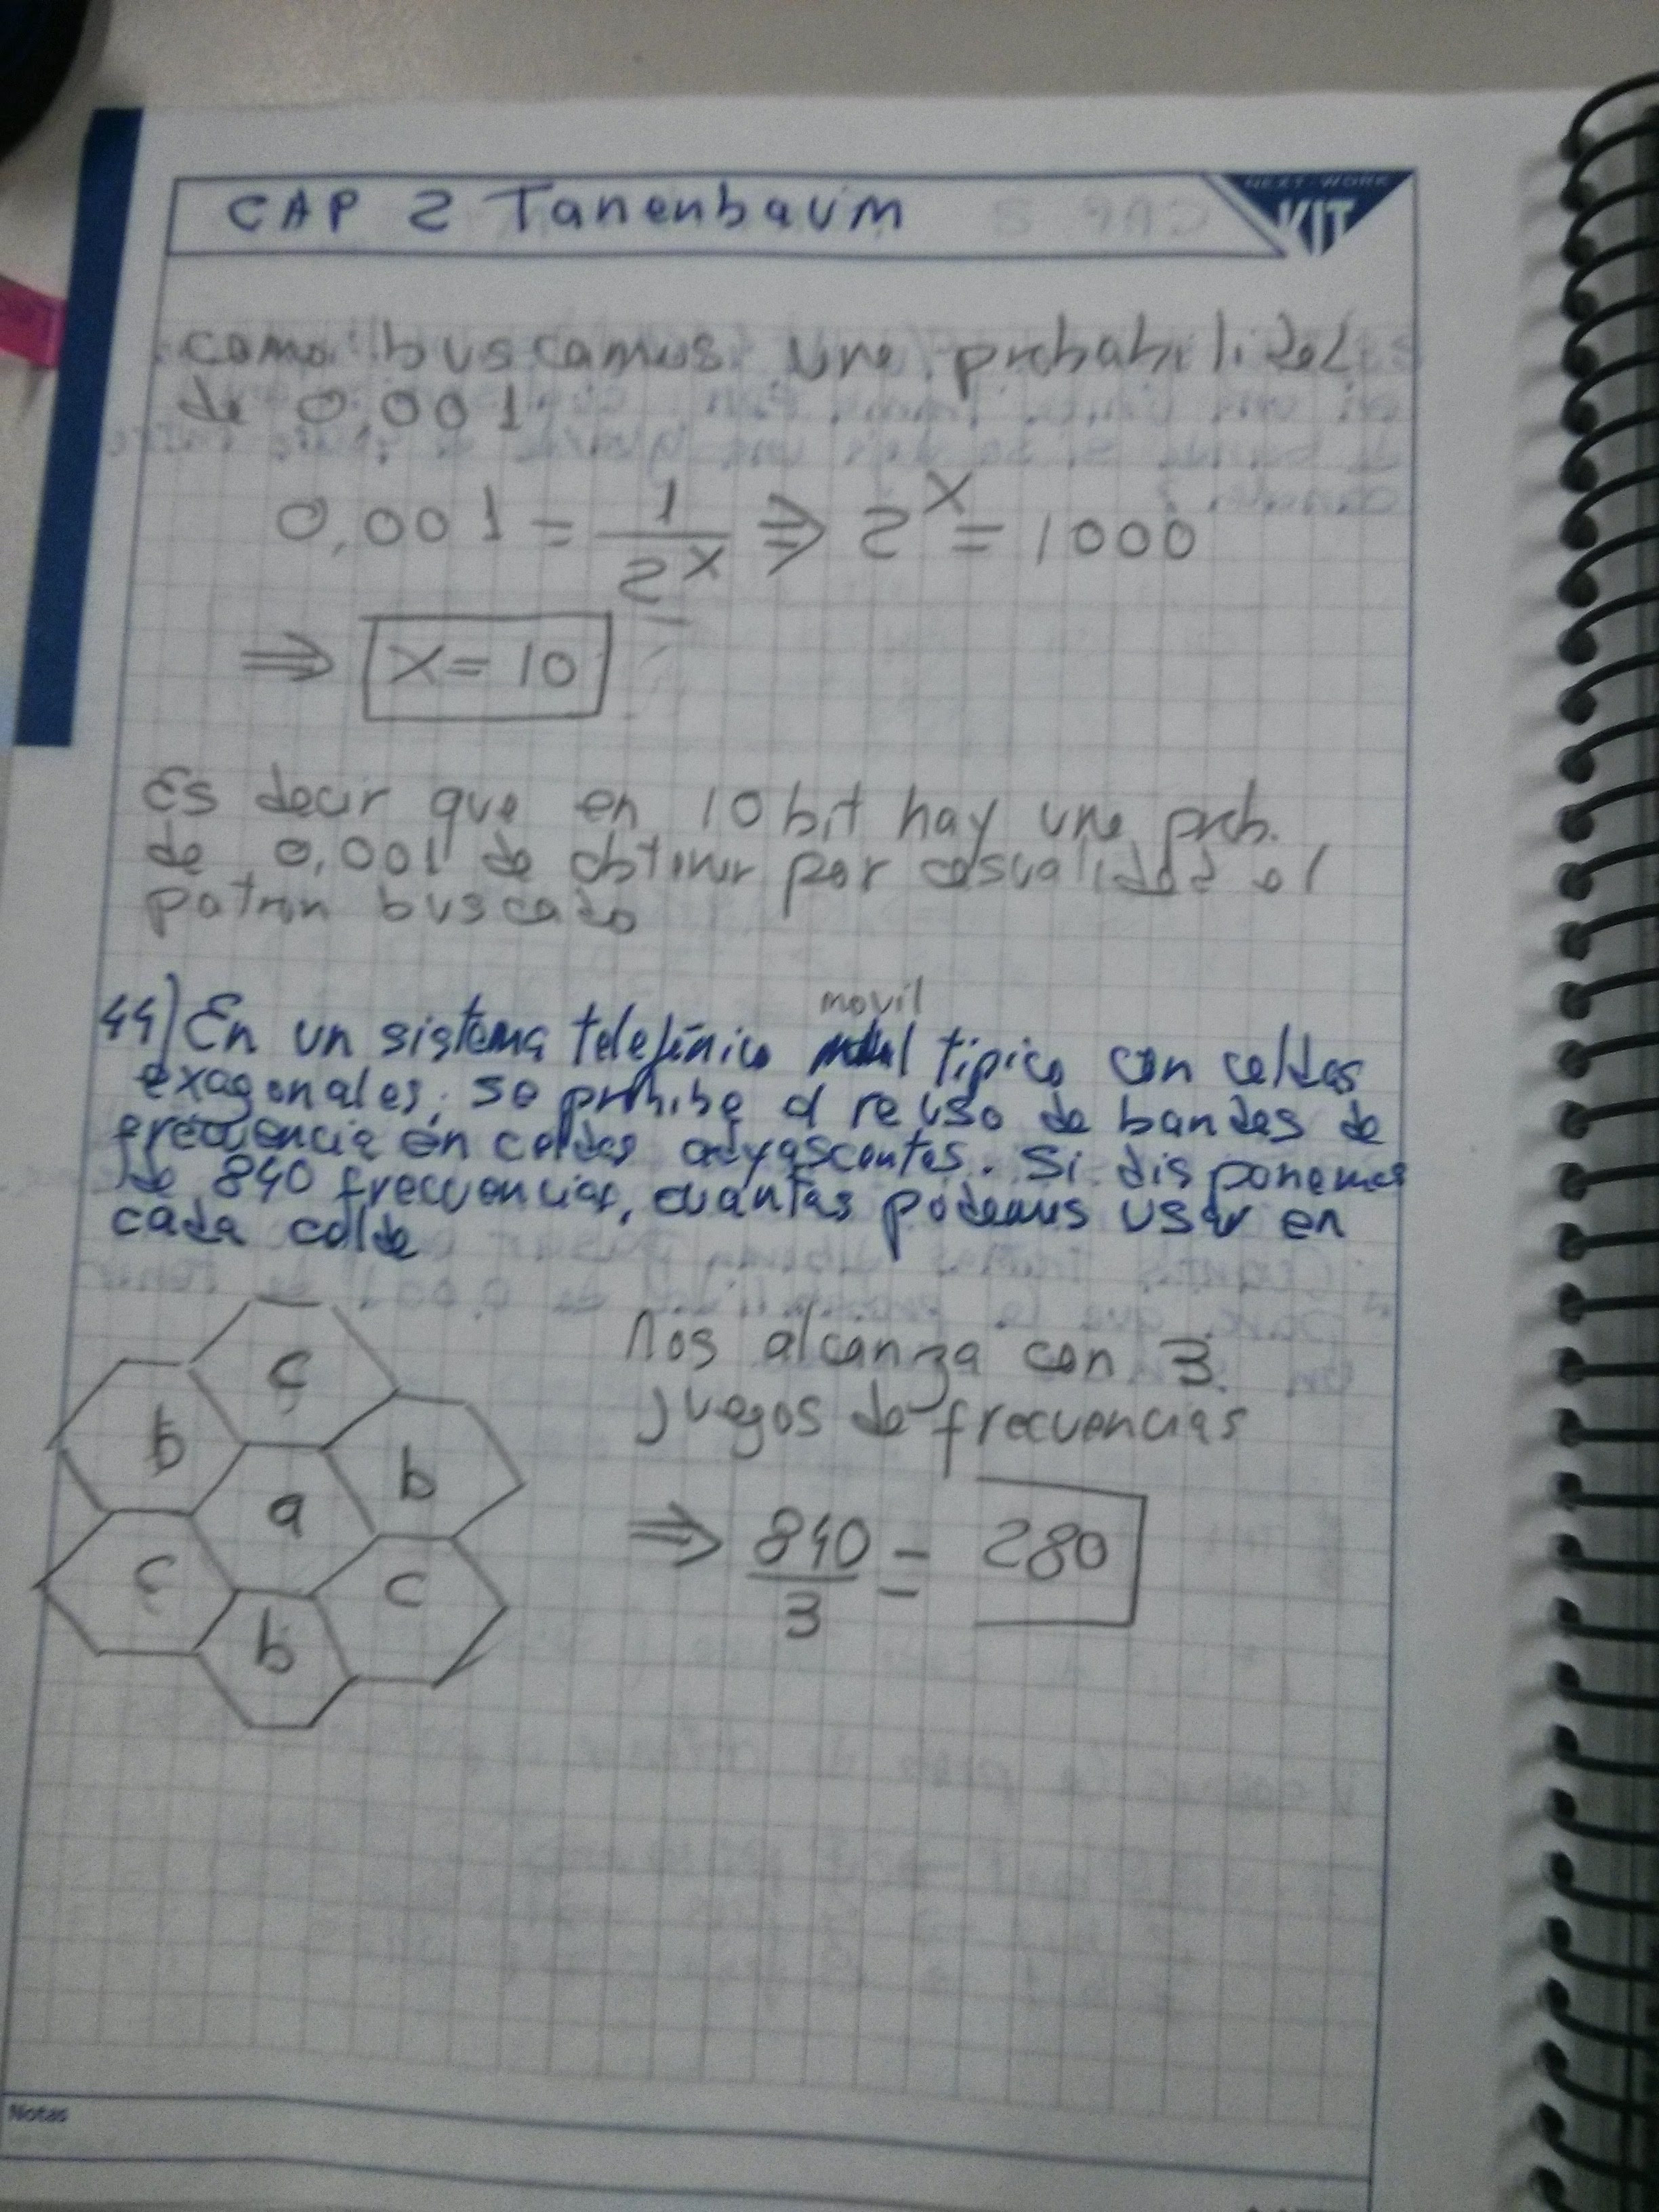 CAP 2 Tanenbaum
NEXT WORK
KIT
como buscamos una probabilidad
de 0,001
0,001 = 1/2^x ⇒ 2^x = 1000
⇒ x = 10
Es decir que en 10 bit hay una prob.
de 0,001 de obtener por casualidad el
patron buscado
44) En un sistema telefónico movil tipico con celdas
exagonales, se prohibe el reuso de bandas de
frecuencia en celdas adyascentes. Si disponemos
de 840 frecuencias, cuántas podemos usar en
cada celda
c
b
b
a
c
c
b
Nos alcanza con 3
juegos de frecuencias
⇒ 840/3 = 280
Notas